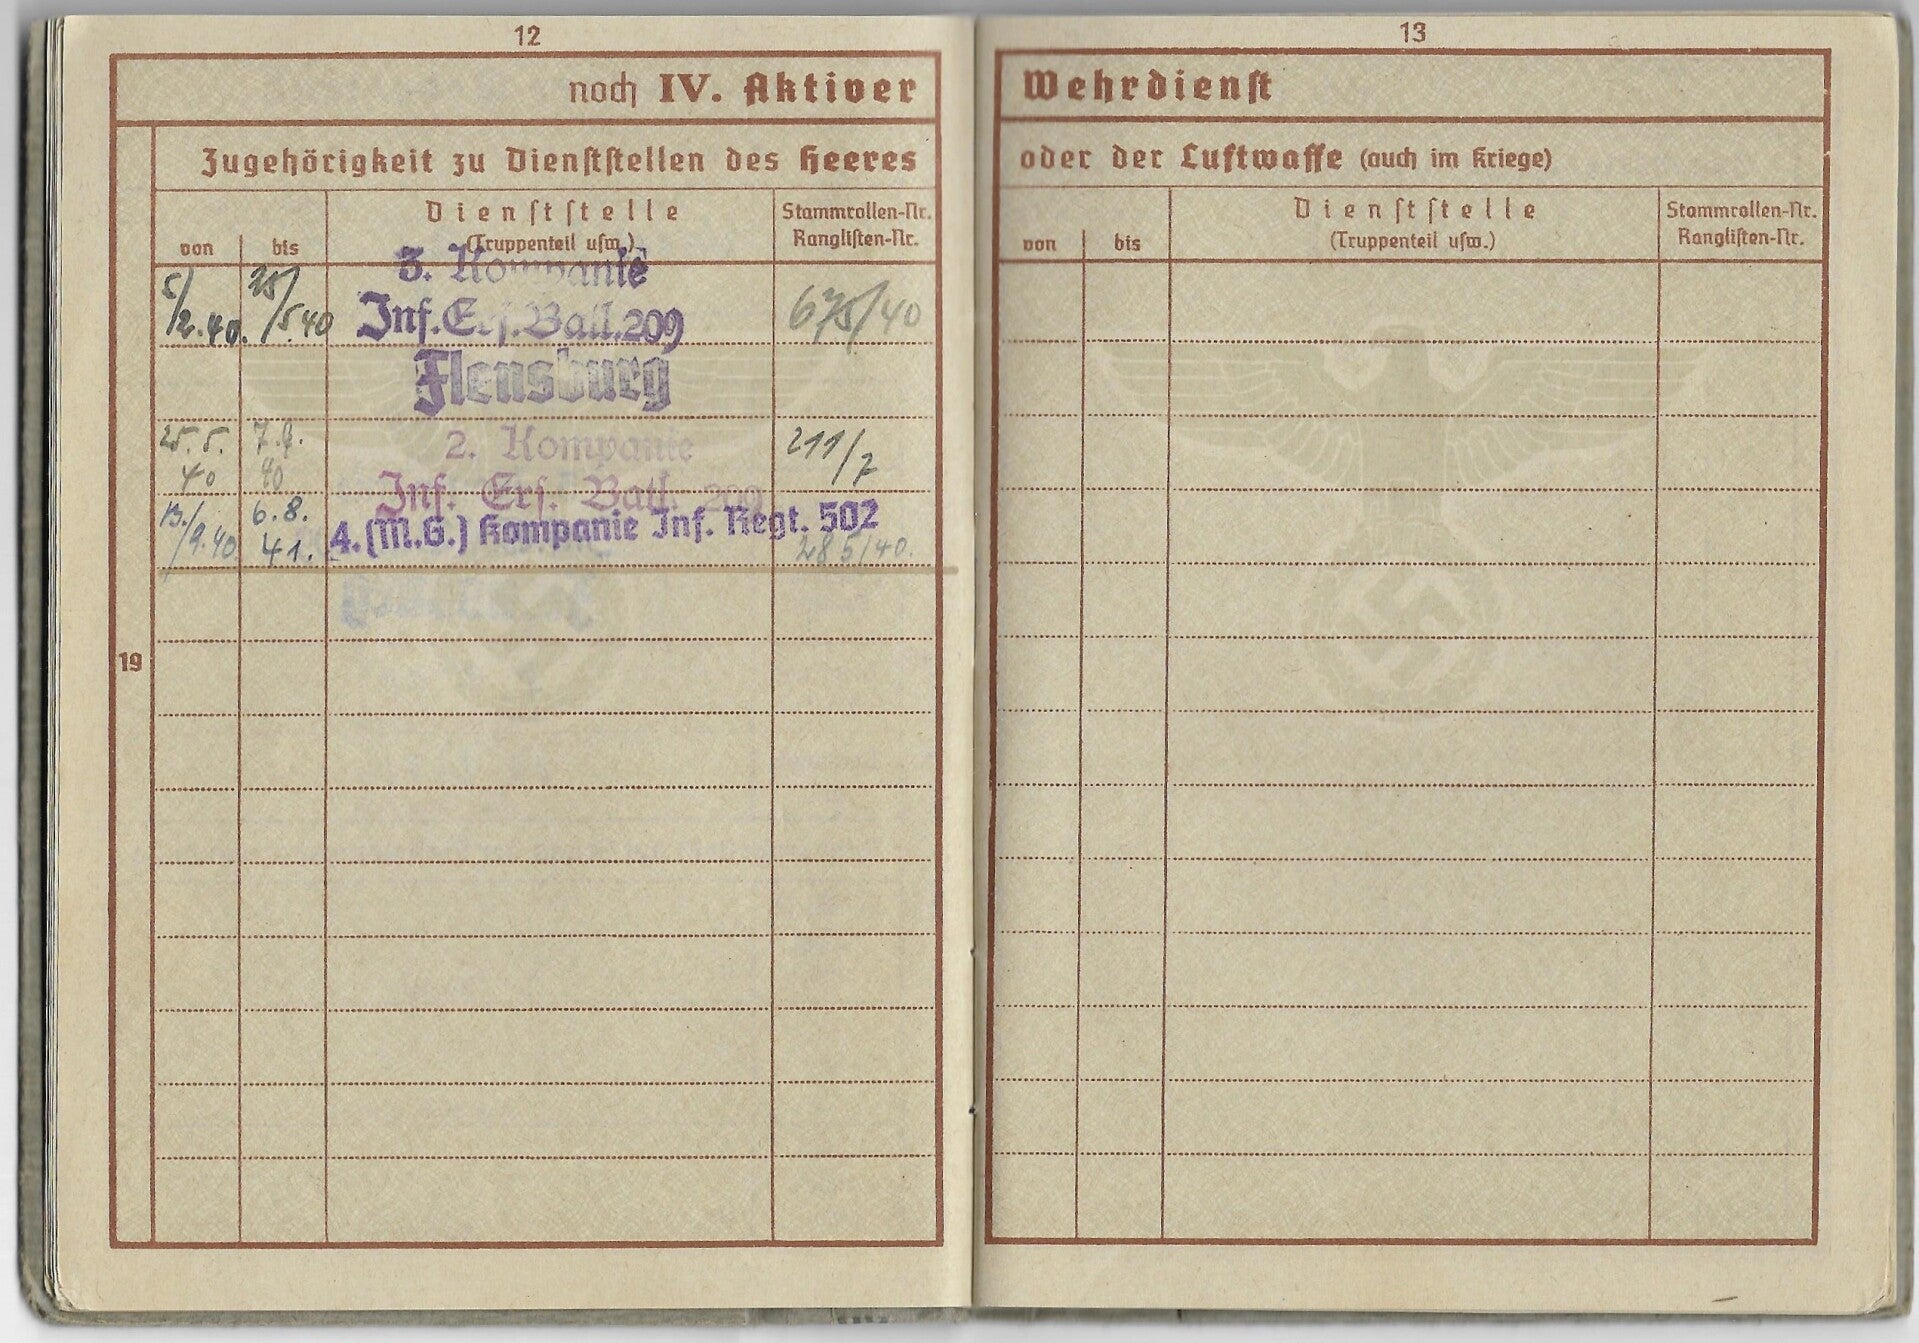 12
noch IV. Aktiver
Zugehörigkeit zu Dienststellen des Heeres
von
bis
Dienststelle
(Truppenteil usw.)
Stammrollen-Nr.
Ranglisten-Nr.
5/2.40.
25/5.40
3. Kompanie
Inf. Ers. Batl. 209
Flensburg
675/40
25.5.40
7.9.40
2. Kompanie
Inf. Ers. Batl. 209
211/2
13./9.40
6.8.41.
4. (M.G.) Kompanie Inf. Regt. 502
285/40.
19
13
Wehrdienst
oder der Luftwaffe (auch im Kriege)
von
bis
Dienststelle
(Truppenteil usw.)
Stammrollen-Nr.
Ranglisten-Nr.